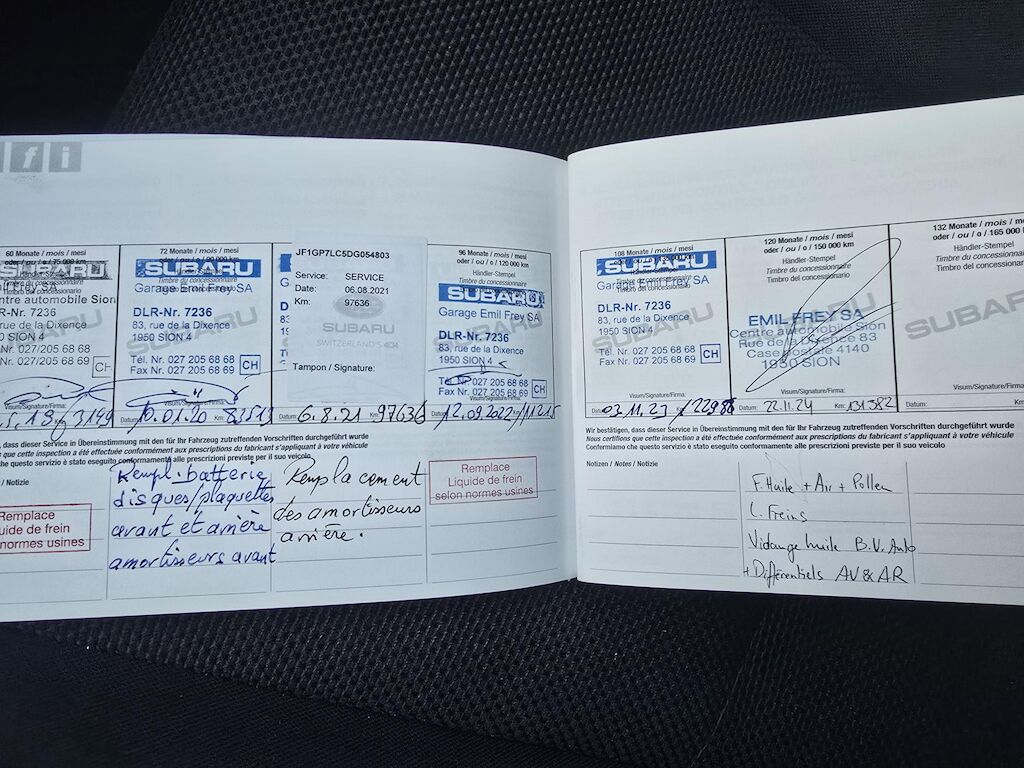 f i
60 Monate / mois / mesi
SUBARU
ntre automobile Sion
R-Nr. 7236
rue de la Dixence
0 SION 4
Nr. 027/205 68 68
Nr. 027/205 68 69
CH
Visum/Signature/Firma:
72 Monate / mois / mesi
SUBARU
Garage Emil Frey SA
DLR-Nr. 7236
83, rue de la Dixence
1950 SION 4
Tél. Nr. 027 205 68 68
Fax Nr. 027 205 68 69
CH
Visum/Signature/Firma:
Datum:
Km: 83513
JF1GP7LC5DG054803
Service: SERVICE
Date: 06.08.2021
Km: 97636
SUBARU
SWITZERLAND'S 4x4
Tampon / Signature:
Datum: 6.8.21 97636
96 Monate / mois / mesi
oder / ou / o / 120 000 km
Händler-Stempel
Timbre du concessionnaire
Timbro del concessionario
SUBARU
Garage Emil Frey SA
DLR-Nr. 7236
83, rue de la Dixence
1950 SION 4
Tél. Nr. 027 205 68 68
Fax Nr. 027 205 68 69
CH
Visum/Signature/Firma:
12.09.2022 111215
, dass dieser Service in Übereinstimmung mit den für Ihr Fahrzeug zutreffenden Vorschriften durchgeführt wurde
que cette inspection a été effectuée conformément aux prescriptions du fabricant s'appliquant à votre véhicule
che questo servizio è stato eseguito conformemente alle prescrizioni previste per il suo veicolo
/ Notizie
Remplace
uide de frein
normes usines
Rempl. batterie
disques/plaquettes
avant et arrière
amortisseurs avant
Remplacement
des amortisseurs
arrière.
Remplace
Liquide de frein
selon normes usines
108 Monate / mois / mesi
SUBARU
Garage Emil Frey SA
DLR-Nr. 7236
83, rue de la Dixence
1950 SION 4
Tél. Nr. 027 205 68 68
Fax Nr. 027 205 68 69
CH
Visum/Signature/Firma:
Datum: 03.11.23 122986
120 Monate / mois / mesi
oder / ou / o / 150 000 km
Händler-Stempel
Timbre du concessionnaire
Timbro del concessionario
SUBARU
EMIL FREY SA
Centre automobile Sion
Rue de la Dixence 83
Case postale 4140
1950 SION
Visum/Signature/Firma:
Datum: 22.11.24 Km: 131382
132 Monate / mois / mesi
oder / ou / o / 165 000 km
Händler-Stempel
Timbre du concessionnaire
Timbro del concessionario
SUBARU
Visum/Signature/Firma:
Datum:
Wir bestätigen, dass dieser Service in Übereinstimmung mit den für Ihr Fahrzeug zutreffenden Vorschriften durchgeführt wurde
Nous certifions que cette inspection a été effectuée conformément aux prescriptions du fabricant s'appliquant à votre véhicule
Confermiamo che questo servizio è stato eseguito conformemente alle prescrizioni previste per il suo veicolo
Notizen / Notes / Notizie
F. Huile + Air + Pollen
L. Freins
Vidange huile B.V. Auto
+ Différentiels AV & AR